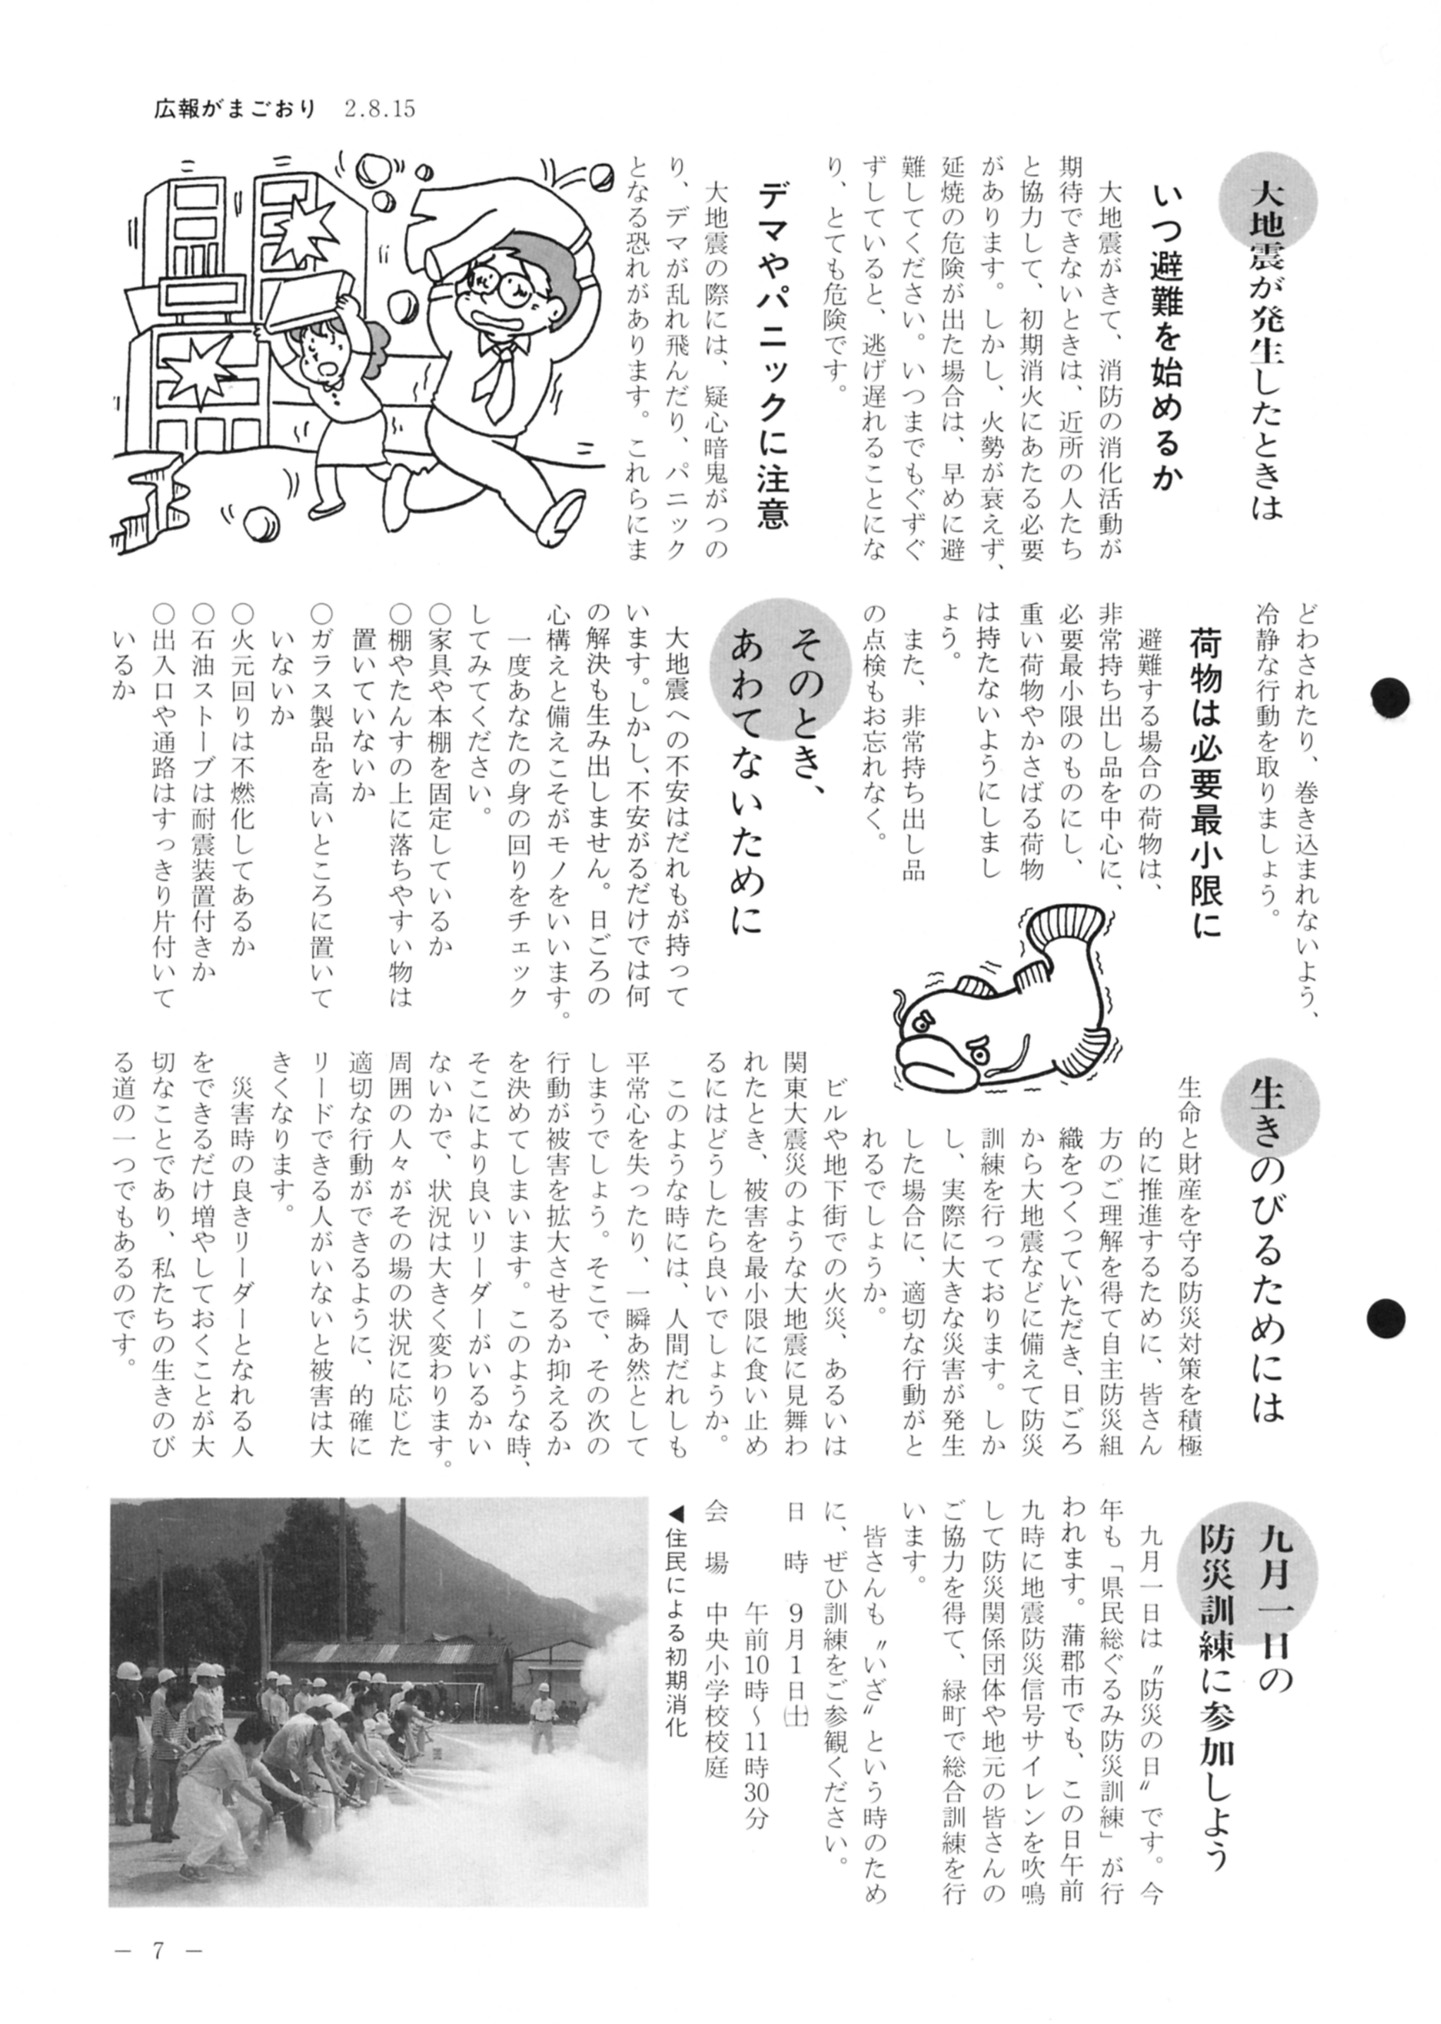 広報がまごおり 2.8.15
大地震が発生したときは
いつ避難を始めるか
大地震がきて、消防の消化活動が
期待できないときは、近所の人たち
と協力して、初期消火にあたる必要
があります。しかし、火勢が衰えず、
延焼の危険が出た場合は、早めに避
難してください。いつまでもぐずぐ
ずしていると、逃げ遅れることにな
り、とても危険です。
デマやパニックに注意
大地震の際には、疑心暗鬼がつの
り、デマが乱れ飛んだり、パニック
となる恐れがあります。これらにま
どわされたり、巻き込まれないよう、
冷静な行動を取りましょう。
荷物は必要最小限に
避難する場合の荷物は、
非常持ち出し品を中心に、
必要最小限のものにし、
重い荷物やかさばる荷物
は持たないようにしまし
ょう。
また、非常持ち出し品
の点検もお忘れなく。
そのとき、
あわてないために
大地震への不安はだれもが持って
います。しかし、不安がるだけでは何
の解決も生み出しません。日ごろの
心構えと備えこそがモノをいいます。
一度あなたの身の回りをチェック
してみてください。
○家具や本棚を固定しているか
○棚やたんすの上に落ちやすい物は
置いていないか
○ガラス製品を高いところに置いて
いないか
○火元回りは不燃化してあるか
○石油ストーブは耐震装置付きか
○出入口や通路はすっきり片付いて
いるか
生きのびるためには
生命と財産を守る防災対策を積極
的に推進するために、皆さん
方のご理解を得て自主防災組
織をつくっていただき、日ごろ
から大地震などに備えて防災
訓練を行っております。しか
し、実際に大きな災害が発生
した場合に、適切な行動がと
れるでしょうか。
ビルや地下街での火災、あるいは
関東大震災のような大地震に見舞わ
れたとき、被害を最小限に食い止め
るにはどうしたら良いでしょうか。
このような時には、人間だれしも
平常心を失ったり、一瞬あ然として
しまうでしょう。そこで、その次の
行動が被害を拡大させるか抑えるか
を決めてしまいます。このような時、
そこにより良いリーダーがいるかい
ないかで、状況は大きく変わります。
周囲の人々がその場の状況に応じた
適切な行動ができるように、的確に
リードできる人がいないと被害は大
きくなります。
災害時の良きリーダーとなれる人
をできるだけ増やしておくことが大
切なことであり、私たちの生きのび
る道の一つでもあるのです。
九月一日の
防災訓練に参加しよう
九月一日は〝防災の日〟です。今
年も「県民総ぐるみ防災訓練」が行
われます。蒲郡市でも、この日午前
九時に地震防災信号サイレンを吹鳴
して防災関係団体や地元の皆さんの
ご協力を得て、緑町で総合訓練を行
います。
皆さんも〝いざ〟という時のため
に、ぜひ訓練をご参観ください。
日 時 9月1日㈯
午前10時～11時30分
会 場 中央小学校校庭
◀住民による初期消化
— 7 —